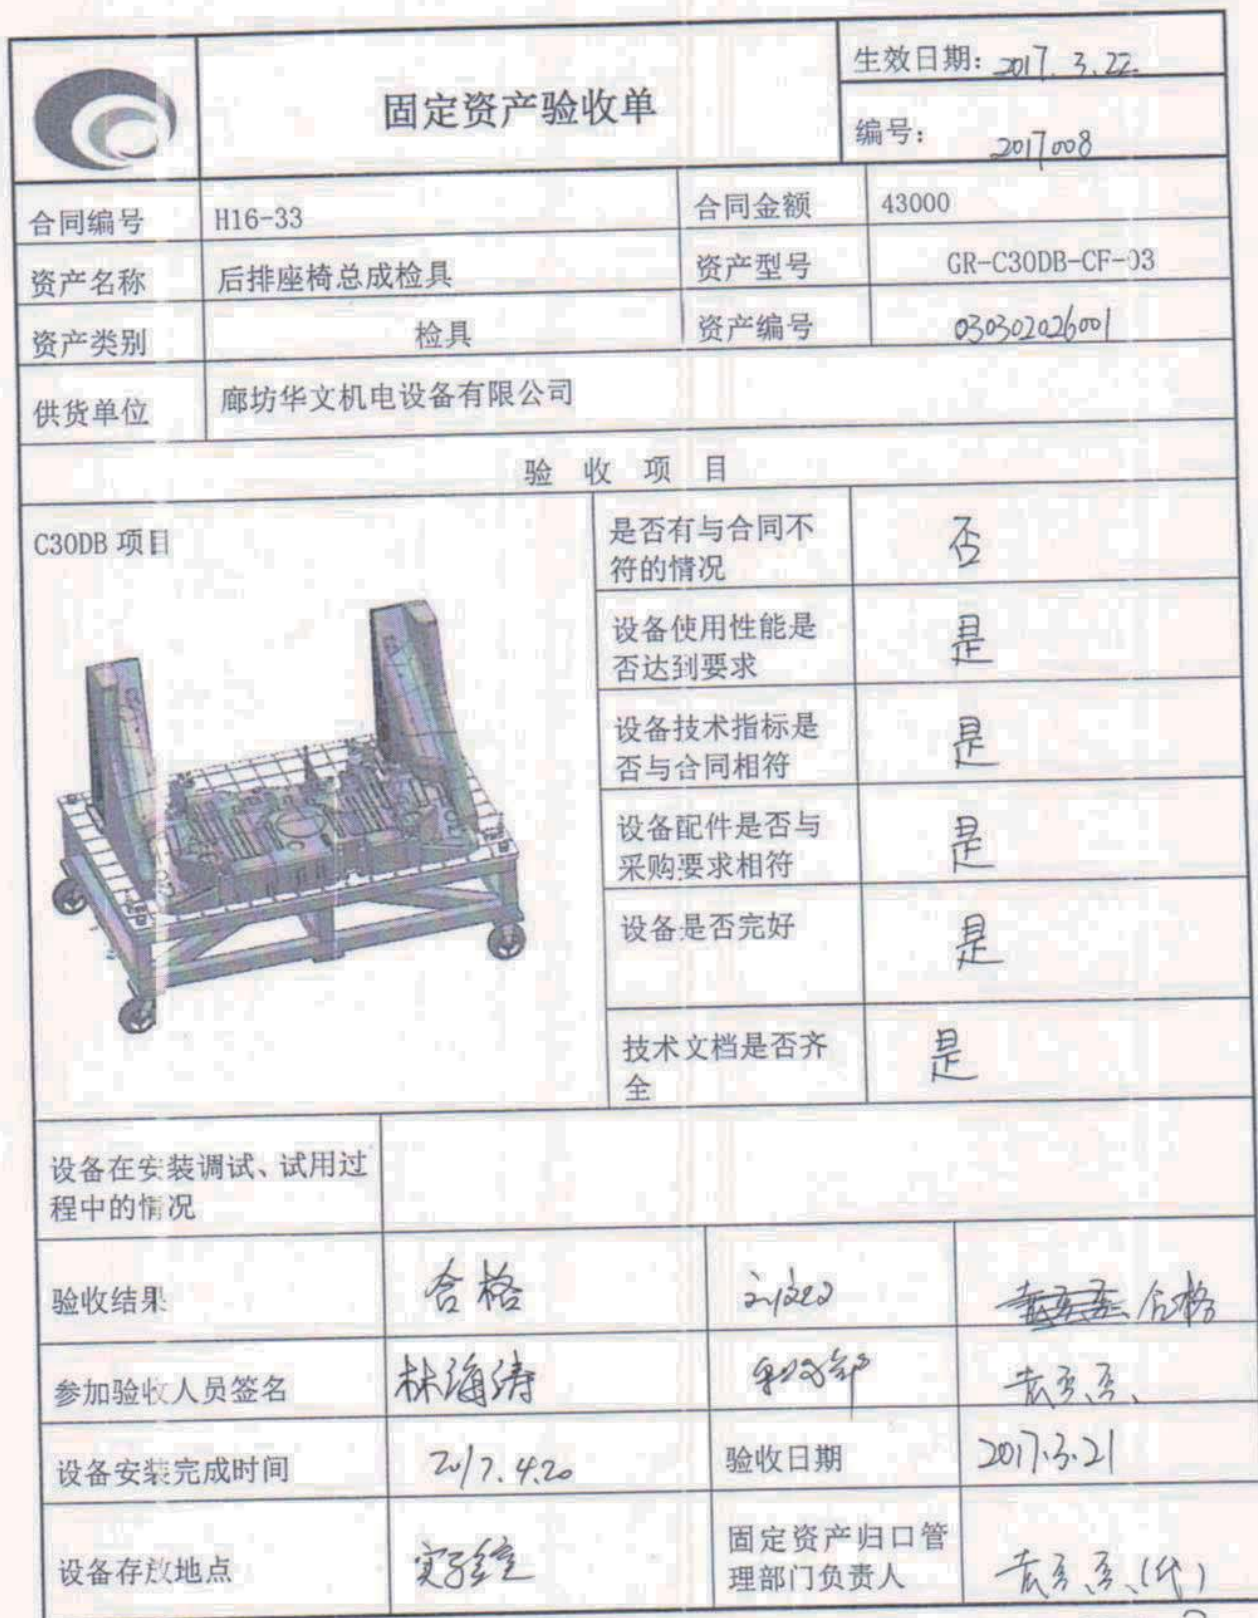 固定资产验收单
生效日期: 2017.3.22.
编号: 2017008
合同编号 H16-33 合同金额 43000
资产名称 后排座椅总成检具 资产型号 GR-C30DB-CF-03
资产类别 检具 资产编号 030302026001
供货单位 廊坊华文机电设备有限公司
验收项目
C30DB 项目
是否有与合同不
符的情况
否
设备使用性能是
否达到要求
是
设备技术指标是
否与合同相符
是
设备配件是否与
采购要求相符
是
设备是否完好
是
技术文档是否齐
全
是
设备在安装调试、试用过
程中的情况
验收结果 合格 合格
参加验收人员签名 林海涛
设备安装完成时间 2017.4.20 验收日期 2017.3.21
设备存放地点 实验室
固定资产归口管
理部门负责人
(代)